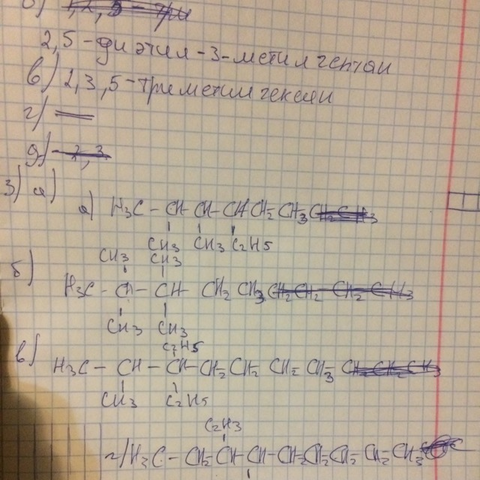 2,5-диэтил-3-метилгептан
в) 2,3,5-триметилгексан
г) —
д)
3) а)
а) H₃C – CH – CH – CH CH₂ CH₃
CH₃ CH₃ C₂H₅
б)
CH₃ CH₃
H₃C – CH – CH CH₂ CH₃
CH₃ CH₃
в)
C₂H₅
H₃C – CH – CH – CH₂ CH₂ CH₂ CH₃
CH₃ C₂H₅
C₂H₃
г) H₃C – CH₂ CH – CH – CH₂ CH₂ CH₂ CH₂ CH₃